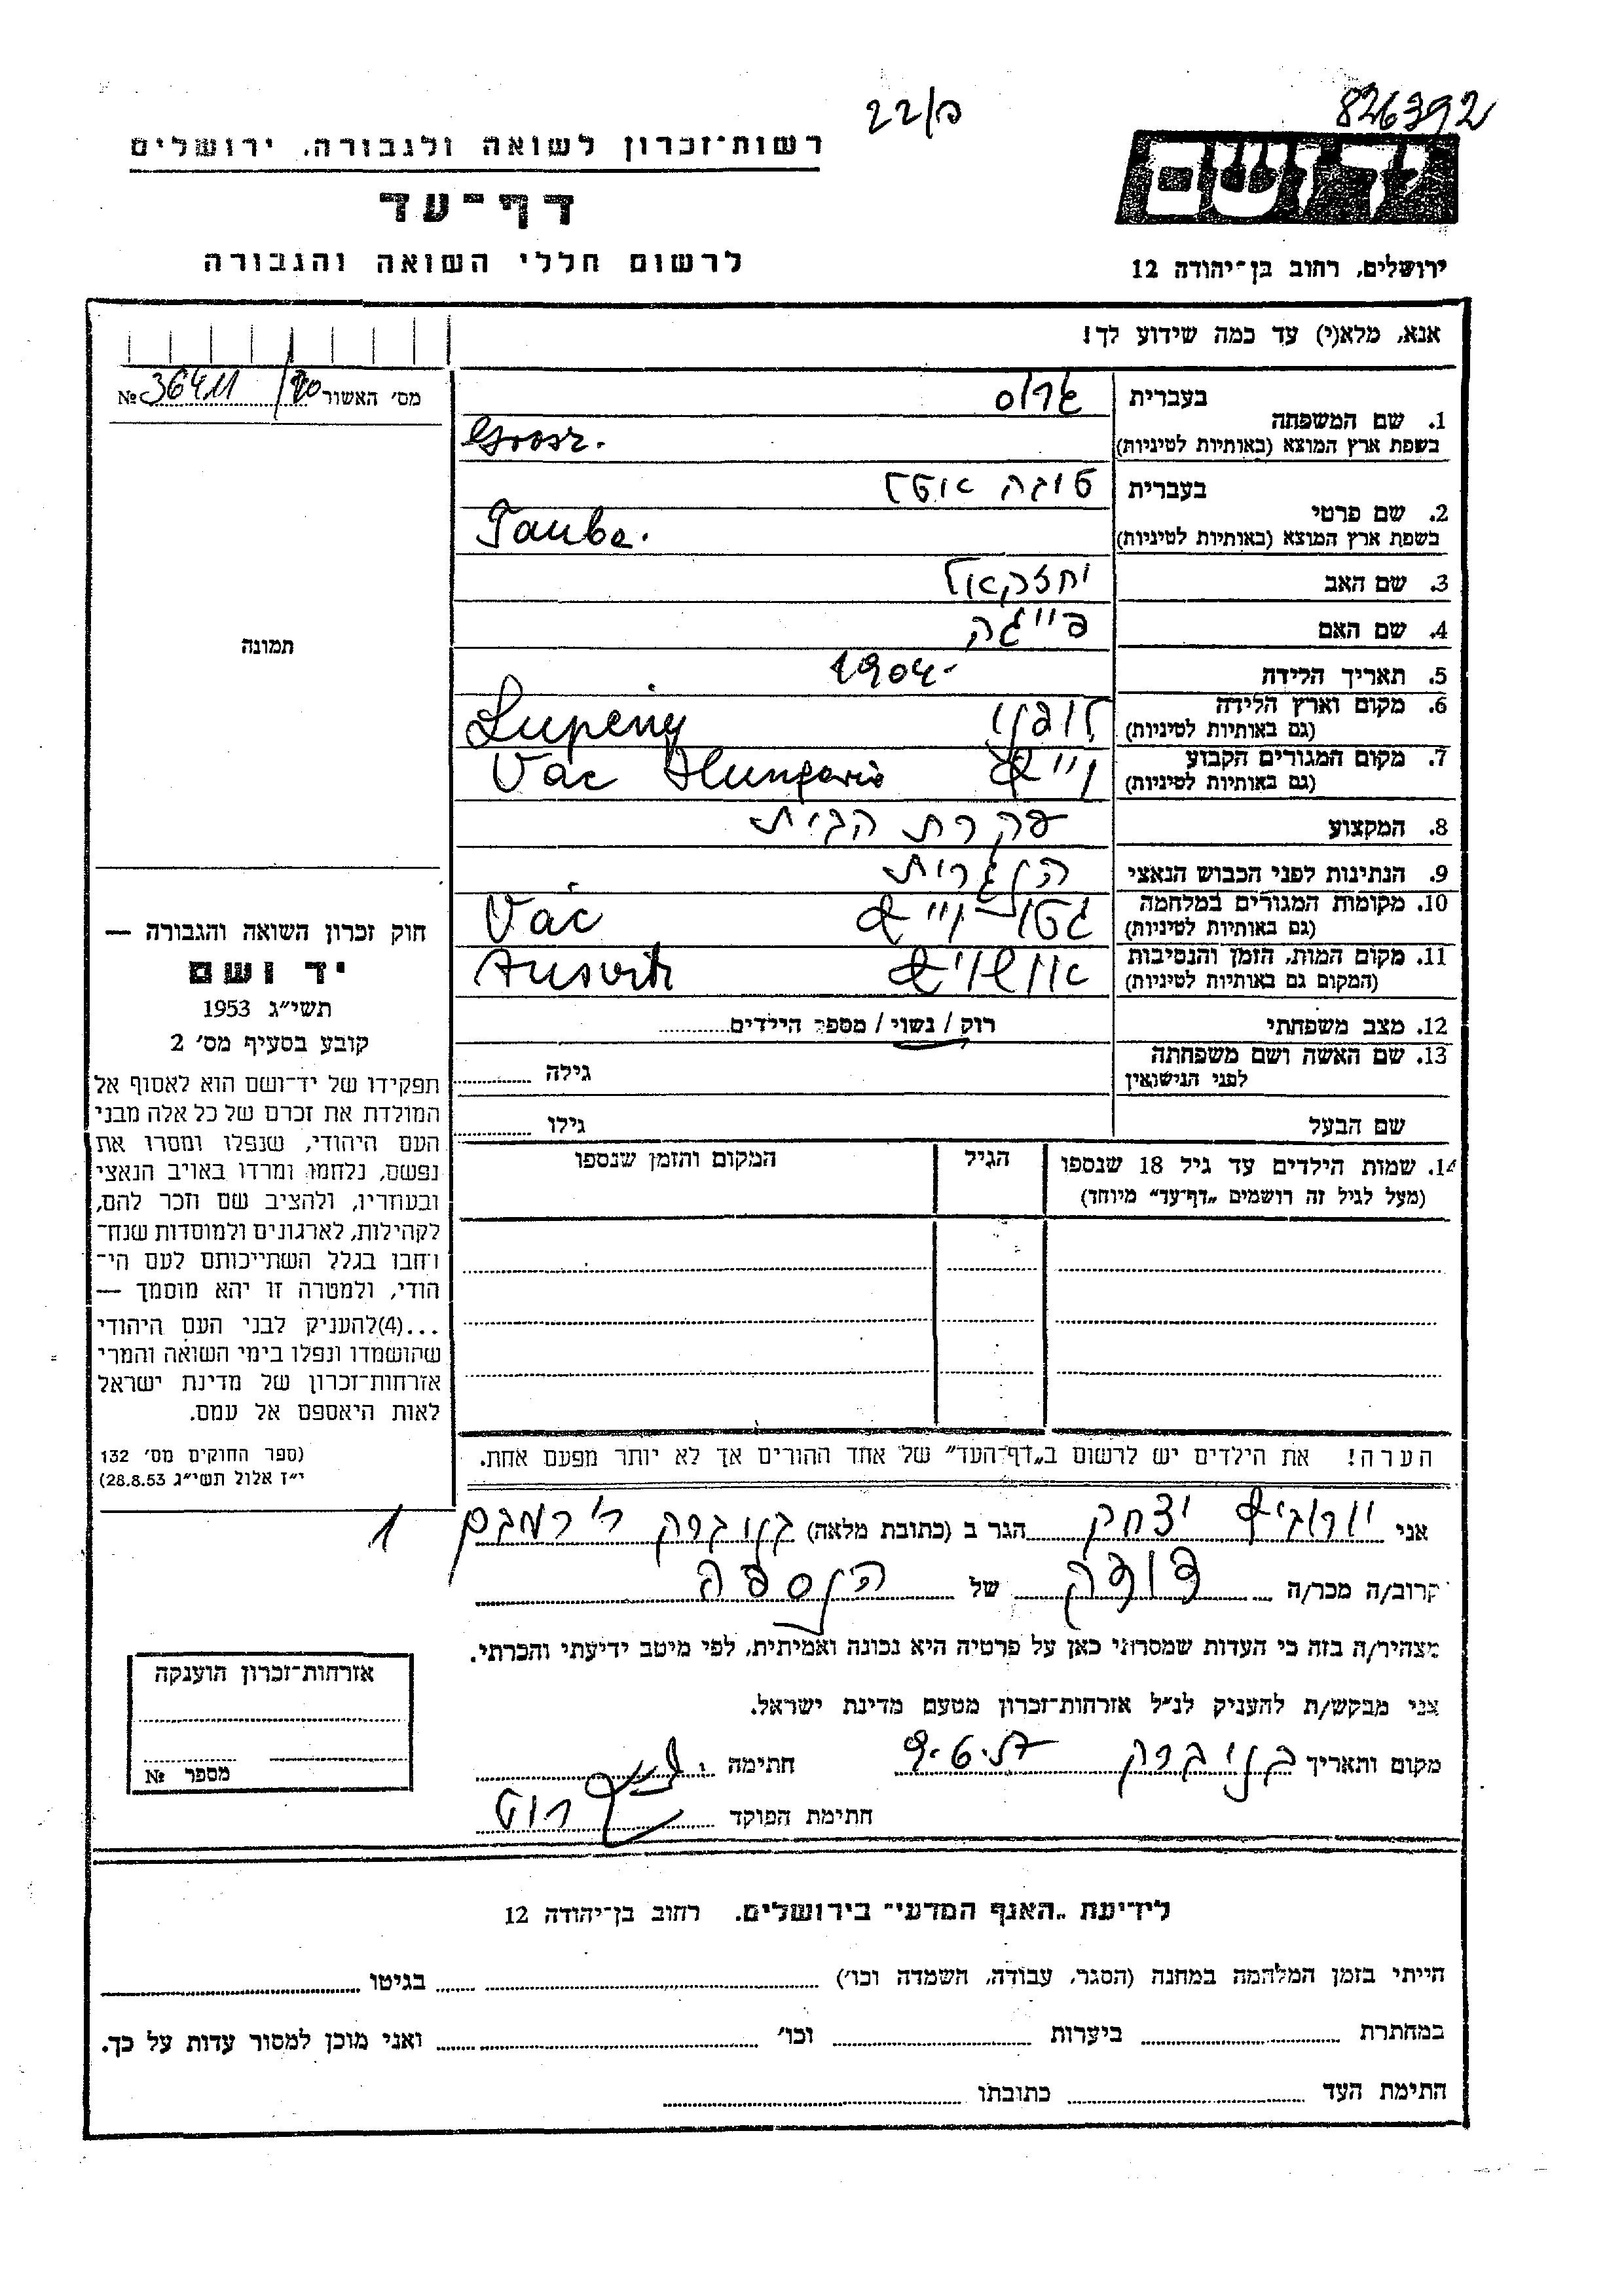 22/כ
826392
רשות־זכרון לשואה ולגבורה. ירושלים
יד ושם
דף־עד
לרשום חללי השואה והגבורה
ירושלים, רחוב בן־יהודה 12
אנא, מלא(י) עד כמה שידוע לך!
מס׳ האשור 36411 №
1. שם המשפחה
בעברית גרוס
בשפת ארץ המוצא (באותיות לטיניות) Grosz.
2. שם פרטי
בעברית טובה
בשפת ארץ המוצא (באותיות לטיניות) Taube.
3. שם האב יחזקאל
4. שם האם פייגה
5. תאריך הלידה 1904-
6. מקום וארץ הלידה Lupeny
(גם באותיות לטיניות)
7. מקום המגורים הקבוע וייצ Vac Hungaria
(גם באותיות לטיניות)
8. המקצוע עקרת הבית
9. הנתינות לפני הכבוש הנאצי הונגרית
10. מקומות המגורים במלחמה גטו וייצ Vác
(גם באותיות לטיניות)
11. מקום המות, הזמן והנסיבות אושויץ
(המקום גם באותיות לטיניות)
12. מצב משפחתי רוק / נשוי / מספר הילדים
13. שם האשה ושם משפחתה
לפני הנישואין
גילה
שם הבעל גילו
14. שמות הילדים עד גיל 18 שנספו הגיל המקום והזמן שנספו
(מעל לגיל זה רושמים „דף־עד” מיוחד)
הערה! את הילדים יש לרשום ב„דף־העד” של אחד ההורים אך לא יותר מפעם אחת.
תמונה
חוק זכרון השואה והגבורה —
יד ושם
תשי״ג 1953
קובע בסעיף מס׳ 2
תפקידו של יד־ושם הוא לאסוף אל
המולדת את זכרם של כל אלה מבני
העם היהודי, שנפלו ומסרו את
נפשם, נלחמו ומרדו באויב הנאצי
ובעוזריו, ולהציב שם וזכר להם,
לקהילות, לארגונים ולמוסדות שנח־
רחבו בגלל השתייכותם לעם הי־
הודי, ולמטרה זו יהא מוסמך —
...(4)להעניק לבני העם היהודי
שהושמדו ונפלו בימי השואה והמרי
אזרחות־זכרון של מדינת ישראל
לאות היאספם אל עמם.
(ספר החוקים מס׳ 132
י״ז אלול תשי״ג 28.8.53)
אני יצחק הגר ב (כתובת מלאה) בני ברק ר׳ רמבם 1
קרוב/ה מכר/ה של הנספה
מצהיר/ה בזה כי העדות שמסרתי כאן על פרטיה היא נכונה ואמיתית, לפי מיטב ידיעתי והכרתי.
אני מבקש/ת להעניק לנ״ל אזרחות־זכרון מטעם מדינת ישראל.
מקום ותאריך בני ברק חתימה
חתימת הפוקד
אזרחות־זכרון הוענקה
מספר №
לידיעת „האגף המדעי” בירושלים. רחוב בן־יהודה 12
הייתי בזמן המלחמה במחנה (הסגר, עבודה, השמדה וכו׳) בגיטו
במחתרת ביערות וכו׳ ואני מוכן למסור עדות על כך.
חתימת העד כתובתו